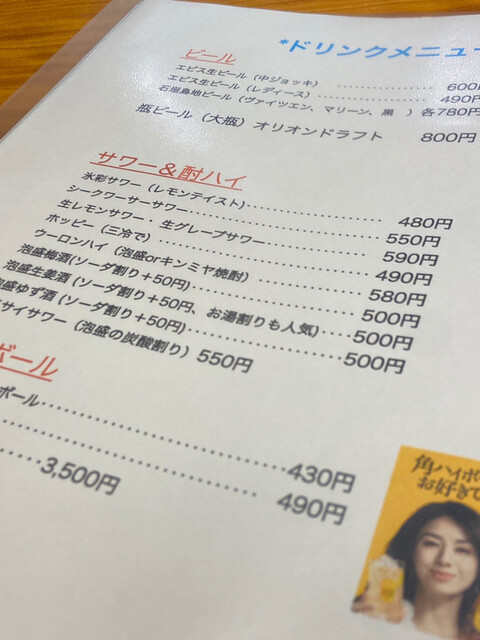 *ドリンクメニュー
ビール
エビス生ビール（中ジョッキ）……600
エビス生ビール（レディース）……490円
石垣島地ビール（ヴァイツエン、マリーン、黒　）各780円
瓶ビール（大瓶）オリオンドラフト　800円
サワー＆酎ハイ
氷彩サワー（レモンテイスト)……480円
シークワーサーサワー……550円
生レモンサワー・生グレープサワー……590円
ホッピー（三冷で）……490円
ウーロンハイ（泡盛orキンミヤ焼酎）……580円
泡盛梅酒(ソーダ割り＋50円)……500円
泡盛生姜酒(ソーダ割り＋50円、お湯割りも人気)……500円
盛ゆず酒(ソーダ割り＋50円)……500円
サイサワー（泡盛の炭酸割り）550円
ボール
ボール……430円
……490円
……3,500円
角ハイボ
お好きで